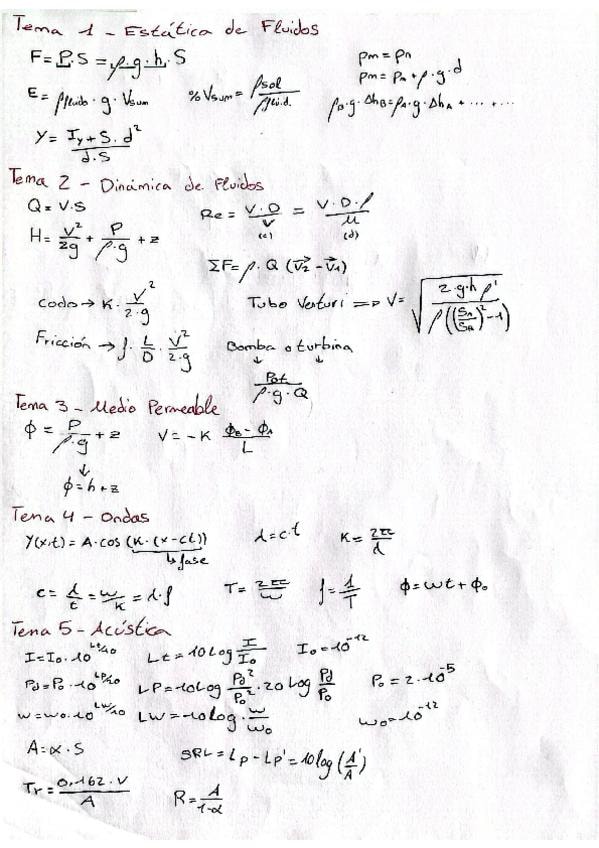 Tema 1 - Estática de Fluidos
F = P·S = ρ·g·h·S
pm = pn
pm = pn + ρ·g·d
E = ρfluido·g·Vsum
%Vsum = ρsol/ρfluid.
ρB·g·ΔhB = ρA·g·ΔhA + ... ...
Y = (Iy + S·d²)/(d·S)
Tema 2 - Dinámica de Fluidos
Q = V·S
Re = V·D/ν = V·D·ρ/μ
(c) (d)
H = V²/2g + P/ρ·g + z
ΣF = ρ·Q (V2 - V1)
Codo → K·V²/2·g
Tubo Venturi => V = √(2·g·h ρ'/ρ((SA/SB)² - 1))
Fricción → f·L/D·V²/2·g
Bomba o turbina
↓ ↓
Pot/ρ·g·Q
Tema 3 - Medio Permeable
ϕ = P/ρ·g + z
V = -K (ϕB - ϕA)/L
↓
ϕ = h + z
Tema 4 - Ondas
Y(x·t) = A·cos(K·(x-ct))
↳ fase
λ = c·t
K = 2π/λ
c = λ/t = w/K = λ·f
T = 2π/w
f = 1/T
ϕ = wt + ϕ0
Tema 5 - Acústica
I = I0·10^Lt/10
Lt = 10Log I/I0
I0 = 10^-12
Pd = P0·10^LP/20
LP = 10Log Pd²/P0²·20Log Pd/P0
P0 = 2·10^-5
w = w0·10^LW/10
LW = 10Log·w/w0
w0 = 10^-12
A = α·S
SRL = Lp - Lp' = 10log(A'/A)
Tr = 0,162·V/A
R = A/1-α